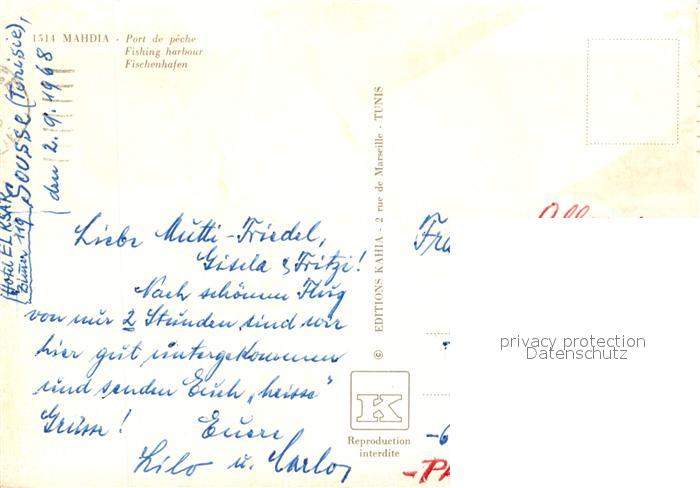 1514 MAHDIA - Port de pêche
Fishing harbour
Fischenhafen
Hotel EL KSAR
Zimmer 119
SOUSSE (Tunisie),
den 2.9.1968
Liebe Mutti-Friedel,
Gisela & Fritzi!
Nach schönem Flug
von nur 2 Stunden sind wir
hier gut untergekommen
und senden Euch „heisse"
Grüsse!
Euere
Lilo u. Carlo
© EDITIONS KAHIA - 2 rue de Marseille - TUNIS
K
Reproduction
interdite
Fra
privacy protection
Datenschutz